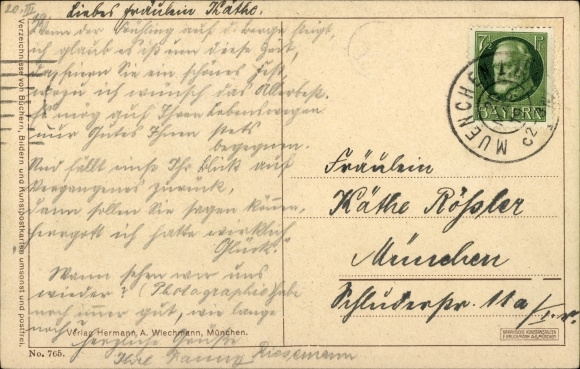 20. III. 19.
Liebes Fräulein Käthe.
Wenn der Frühling auf d. Berge steigt,
ich glaub es ist um diese Zeit,
da feiern Sie ein schönes Fest
wozu ich wünsch das Allerbest.
Es mög auf Ihren Lebenswegen
nur Gutes Ihnen stets
begegnen.
Und fällt einst Ihr Blick auf
Vergangenes zurück,
dann sollen Sie sagen können,
herrgott ich hatte wirklich
Glück."
Wann sehen wir uns
wieder? (Photographie habe
noch immer gut, wie lange
noch?
herzliche Grüße
Ihre Riesemann
Verzeichnisse von Büchern, Bildern und Kunstpostkarten umsonst und postfrei.
Verlag Hermann A. Wiechmann, München.
No. 765.
7½ Pf
BAYERN
MUENCHEN
Fräulein
Käthe Rößler
München
Schluderstr. 11a/
GRAPHISCHE KUNSTANSTALTEN
F. BRUCKMANN A.G. MÜNCHEN